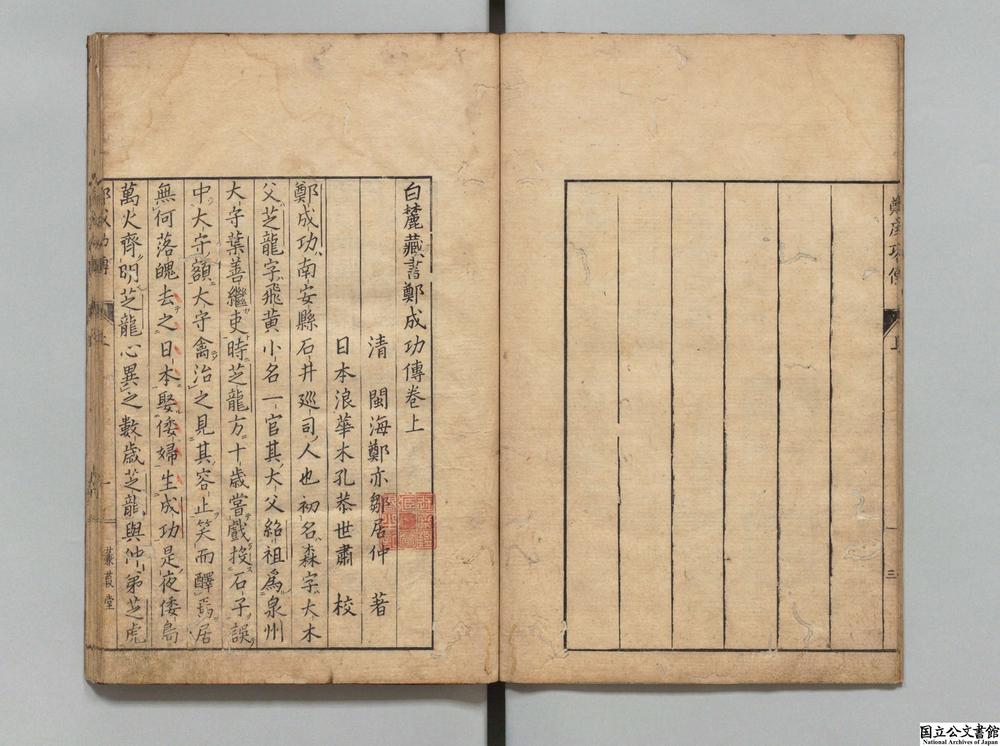 鄭成功傳
三
白麓藏書鄭成功傳卷上
清 閩海鄭亦鄒居仲 著
日本浪華木孔恭世肅 校
鄭成功南安縣石井巡司人也初名森字大木
父芝龍字飛黃小名一官其大父紹祖爲泉州
大守葉善繼吏時芝龍方十歲嘗戲投石子誤
中大守額大守禽治之見其容止笑而釋焉居
無何落魄去之日本娶倭婦生成功是夜倭島
萬火齊明芝龍心異之數歲芝龍與仲弟芝虎
蒹葭堂
国立公文書館
National Archives of Japan